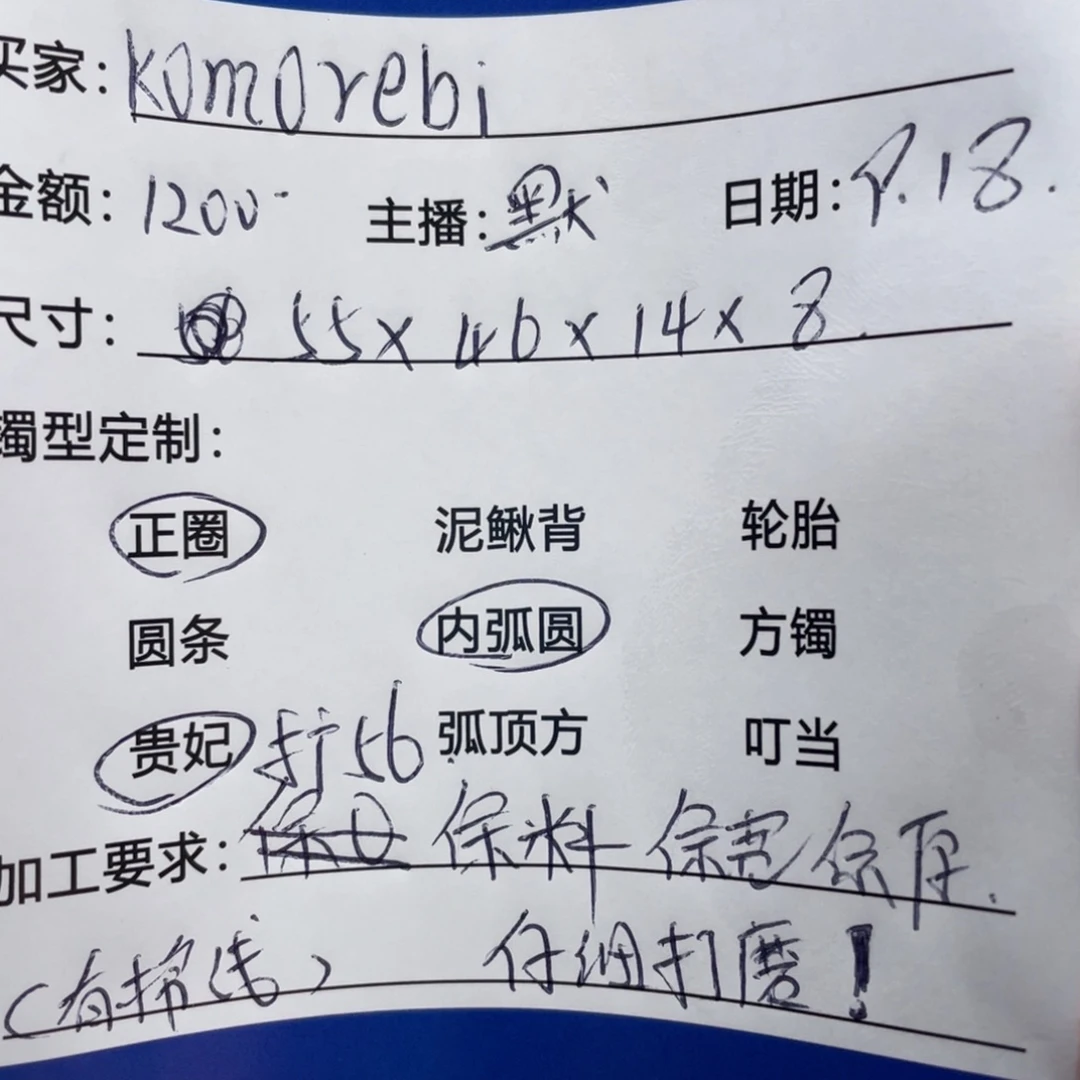 买家: Komorebi
金额: 1200- 主播: 默 日期: 9.18.
尺寸: 55x46x14x8.
镯型定制:
正圈 泥鳅背 轮胎
圆条 内弧圆 方镯
贵妃 打56 弧顶方 叮当
加工要求: 保料 保宽 保厚.
(有扮线) 仔细打磨!